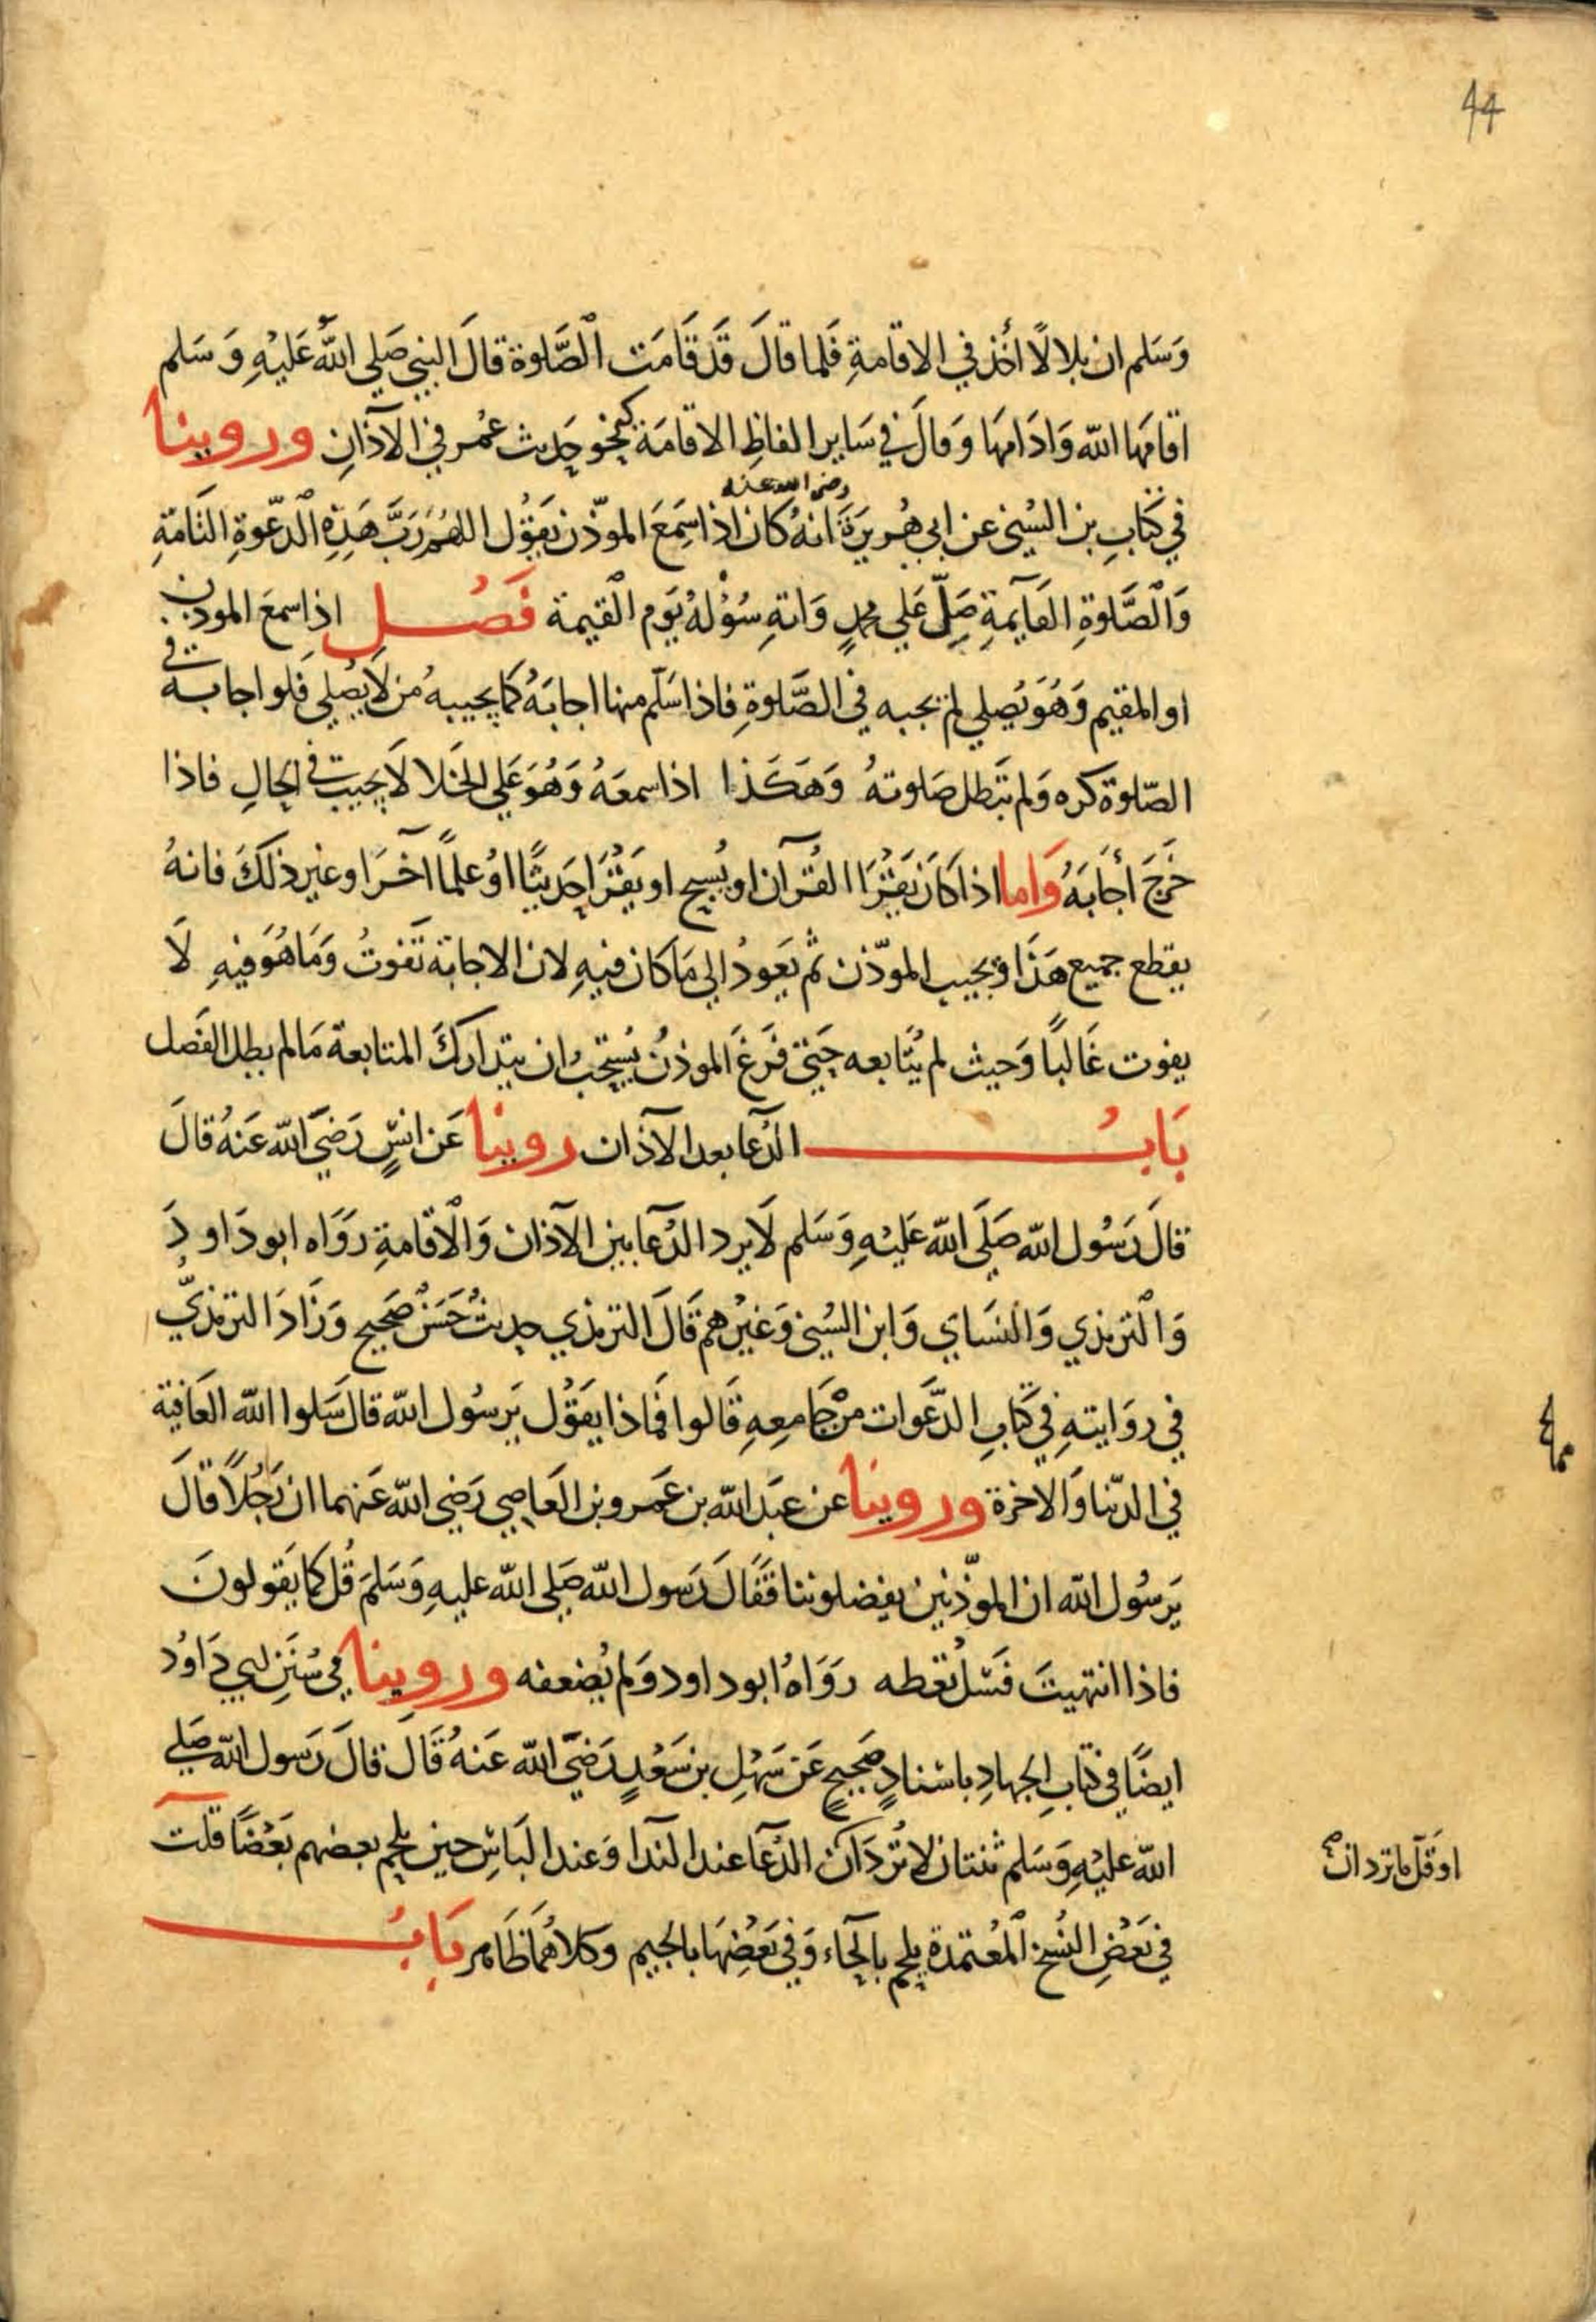 44
وَسَلم ان بلالًا أخذ في الاقامةِ فلما قالَ قَد قَامَت الصَّلوة قالَ النبي صَلي اللهُ عَليْهِ وَسَلم
اقامَها الله وَادَامهَا وَقالَ في سَاير الفاظِ الاقامَة كنحو حَديث عُمر في الآذانِ وروينا
رضى الله عنه
في كتابِ بن السُّني عن ابي هُريرَةَ انهُ كان اذا سَمعَ الموذّن يَقوُل اللهُم رَبَّ هَذِهِ الدّعوةِ التامّةِ
وَالصَّلوةِ القَايمةِ صَلِّ عَلي محمدٍ وَاتهِ سُؤْلهُ يَوم القيمة فَصْل اذا سمعَ الموذن
او المقيم وَهُوَ يُصلي لم يجبه في الصَّلوةِ فاذا سَلّم منها اجابَهُ كمَا يجيبهُ من لَا يُصلي فَلو اجابهُ في
الصّلوة كره وَلم تَبطل صَلوتهُ وَهَكذا اذا سمعَهُ وَهُوَ عَلي الخَلا لَا يجيب في الحالِ فاذا
خَرجَ أجَابَهُ وَاما اذا كَانَ يَقْرَا القُرآن او يُسبح او يَقْرَا حَديثًا اوُ علمًا آخرَ او غير ذلكَ فانهُ
يقطع جميع هَذَا ويجيب الموذّن ثم يَعودُ الي مَا كان فيهِ لان الاجابَة تَفوتُ وَمَا هُوَ فيهِ لَا
يفوت غَالبًا وَحيث لم يُتابعه حَتي فَرغَ الموذنُ يُستحبُ ان يتداركَ المتابعة مَا لم يطل الفَصل
بَابُ الدُعا بعد الآذان روينا عَن انسٍ رَضيَ الله عَنهُ قالَ
قالَ رَسُول الله صَلَي الله عَليْهِ وَسَلم لَا يرد الدُعآ بين الآذان وَالاقامةِ رَوَاه ابو دَاودَ
وَالترمذي وَالنسَاي وَابن السُّني وَغيْرهم قَالَ الترمذي حديثُ حَسَنْ صَحيح وَزَادَ الترمذيّ
في روَايتهِ في كتَابِ الدّعَوات من جَامعِهِ قَالوا فمَاذا يقوُل يَرسُول الله قالَ سَلوا الله العَافية
في الدّنيا وَالاخرة وروينا عن عبَد الله بن عَمرو بن العَاصي رَضي الله عَنهما ان رَجُلًا قالَ
يَرسُول الله ان الموذّنين يفضلوننا فقَالَ رَسول الله صَلي الله عليهِ وَسَلمَ قُل كمَا يَقولونَ
فاذا انتهيتَ فسَل تُعطه رَوَاهُ ابو داود وَلم يُضعفه وروينا في سُنَنِ ابي دَاوُد
ايضًا في كتابِ الجهادِ باسْنادٍ صَحيحٍ عَن سَهْلِ بن سَعْدٍ رَضيَ الله عَنهُ قَالَ قالَ رَسول الله صَلي
الله عليْهِ وَسَلم ثنتان لا تُردَان الدُعآ عند الندا وَعند البَاسِ حين يلحم بعضهم بَعْضًا قلت
او قَلّ ما تردان
في بَعْضِ النُسَخ المُعْتمدة يلحم بالحَاء وَفي بَعْضهَا بالجيم وَكلاهُمَا ظَاهر بَابُ